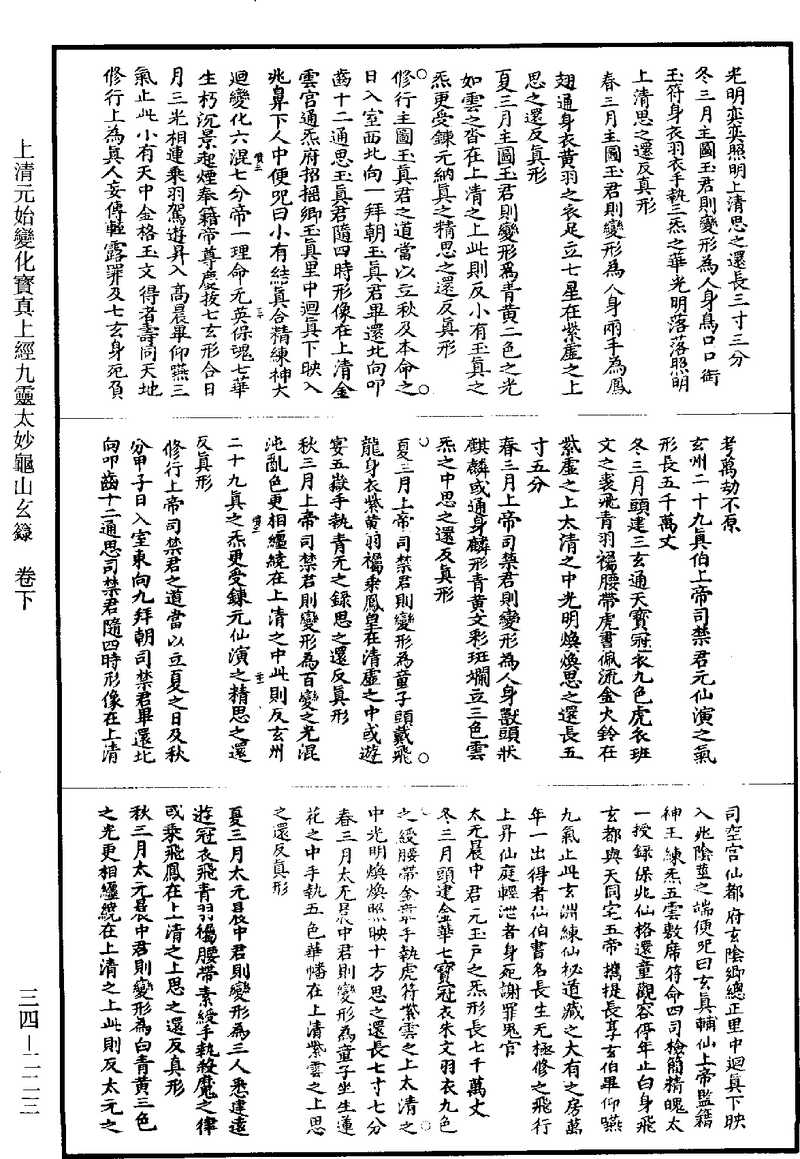 上清元始變化寶真上經九靈太妙龜山玄籙　卷下
三四—二二三
光明奕奕照明上清思之還長三寸三分
冬三月主圖玉君則變形為人身鳥口口銜
玉符身衣羽衣手執三炁之華光明落落照明
上清思之還反真形
春三月主圖玉君則變形為人身兩手為鳳
翅通身衣黃羽之衣足立七星在紫虛之上
思之還反真形
夏三月主圖玉君則變形為青黃二色之光
如雲之沓在上清之上此則反小有玉真之
炁更受鍊元納真之精思之還反真形
修行主圖玉真君之道當以立秋及本命之
日入室西北向一拜朝玉真君畢還北向叩
齒十二通思玉真君隨四時形像在上清金
雲宮通炁府招搖鄉玉真里中迴真下映入
兆鼻下人中便咒曰小有結真合精練神大
迴變化六混七分帝一理命无英保魂七華
生朽沉景起煙奉籍帝尊慶拔七玄形合日
月三光相連乘羽駕遊昇入高晨畢仰嚥三
氣止此小有天中金格玉文得者壽同天地
修行上為真人妄傳輕露罪及七玄身死負
考萬劫不原
玄州二十九真伯上帝司禁君元仙演之氣
形長五千萬丈
冬三月頭建三玄通天寶冠衣九色虎衣班
文之裘飛青羽褐腰帶虎書佩流金火鈴在
紫虛之上太清之中光明煥煥思之還長五
寸五分
春三月上帝司禁君則變形為人身獸頭狀
麒麟或通身麟形青黃文彩班爛立三色雲
炁之中思之還反真形
夏三月上帝司禁君則變形為童子頭戴飛
龍身衣紫黃羽褐乘鳳皇在清虛之中或遊
宴五嶽手執青元之錄思之還反真形
秋三月上帝司禁君則變形為百變之光混
沌亂色更相纏繞在上清之中此則反玄州
二十九真之炁更受鍊元仙演之精思之還
反真形
修行上帝司禁君之道當以立夏之日及秋
分甲子日入室東向九拜朝司禁君畢還北
向叩齒十二通思司禁君隨四時形像在上清
司空宮仙都府玄陰鄉總正里中迴真下映
入兆陰莖之端便咒曰玄真輔仙上帝監籍
神王練炁五雲敷席符命四司檢簡精魄太
一授錄保兆仙格還童觀容停年止白身飛
玄都與天同宅五帝攜提長享玄伯畢仰嚥
九氣止此玄洲練仙祕道藏之大有之房萬
年一出得者仙伯書名長生无極修之飛行
上昇仙庭輕泄者身死謝罪鬼官
太元晨中君元玉戶之炁形長七千萬丈
冬三月頭建金華七寶冠衣朱文羽衣九色
之綬腰帶金鈴手執虎符紫雲之上太清之
中光明煥煥照映十方思之還長七寸七分
春三月太元晨中君則變形為童子坐生蓮
花之中手執五色華幡在上清紫雲之上思
之還反真形
夏三月太元晨中君則變形為三人悉建遠
遊冠衣飛青羽褐腰帶素綬手執殺魔之律
或乘飛鳳在上清之上思之還反真形
秋三月太元晨中君則變形為白青黃三色
之光更相纏繞在上清之上此則反太元之